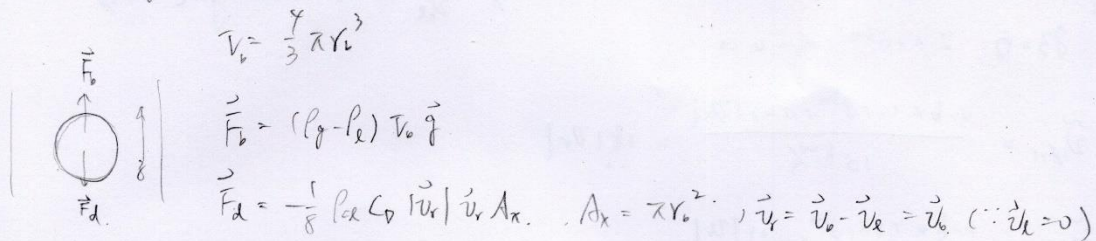 V_b = 4/3 π r_b^3
F⃗_b
F⃗_b = (ρ_g - ρ_l) V_b g⃗
F⃗_d
F⃗_d = - 1/8 ρ_cl C_D |v⃗_r| v⃗_r A_x. , A_x = π r_b^2. , v⃗_r = v⃗_b - v⃗_l = v⃗_b. (∵ v⃗_l = 0)